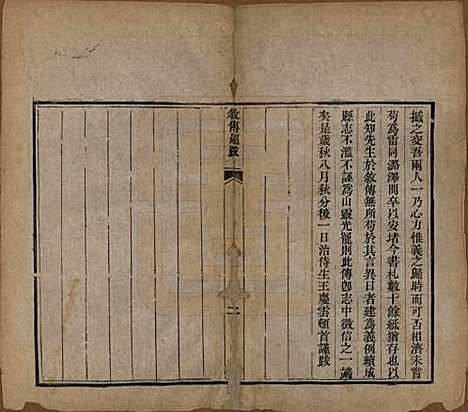 撼之變吾兩人一乃心力惟義之歸時而可否相濟未嘗
苟爲雷同潞澤間卒以安堵今書札數十餘紙猶存也以
此知先生於敘傳無所苟於其言異日者建爲義例續成
縣志不濫不諛爲山靈光寵則此傳卽志中徵信之一
矣是歲秋八月秋分後一日治侍生王慶雲頓首謹跋
敘傳題跋
二